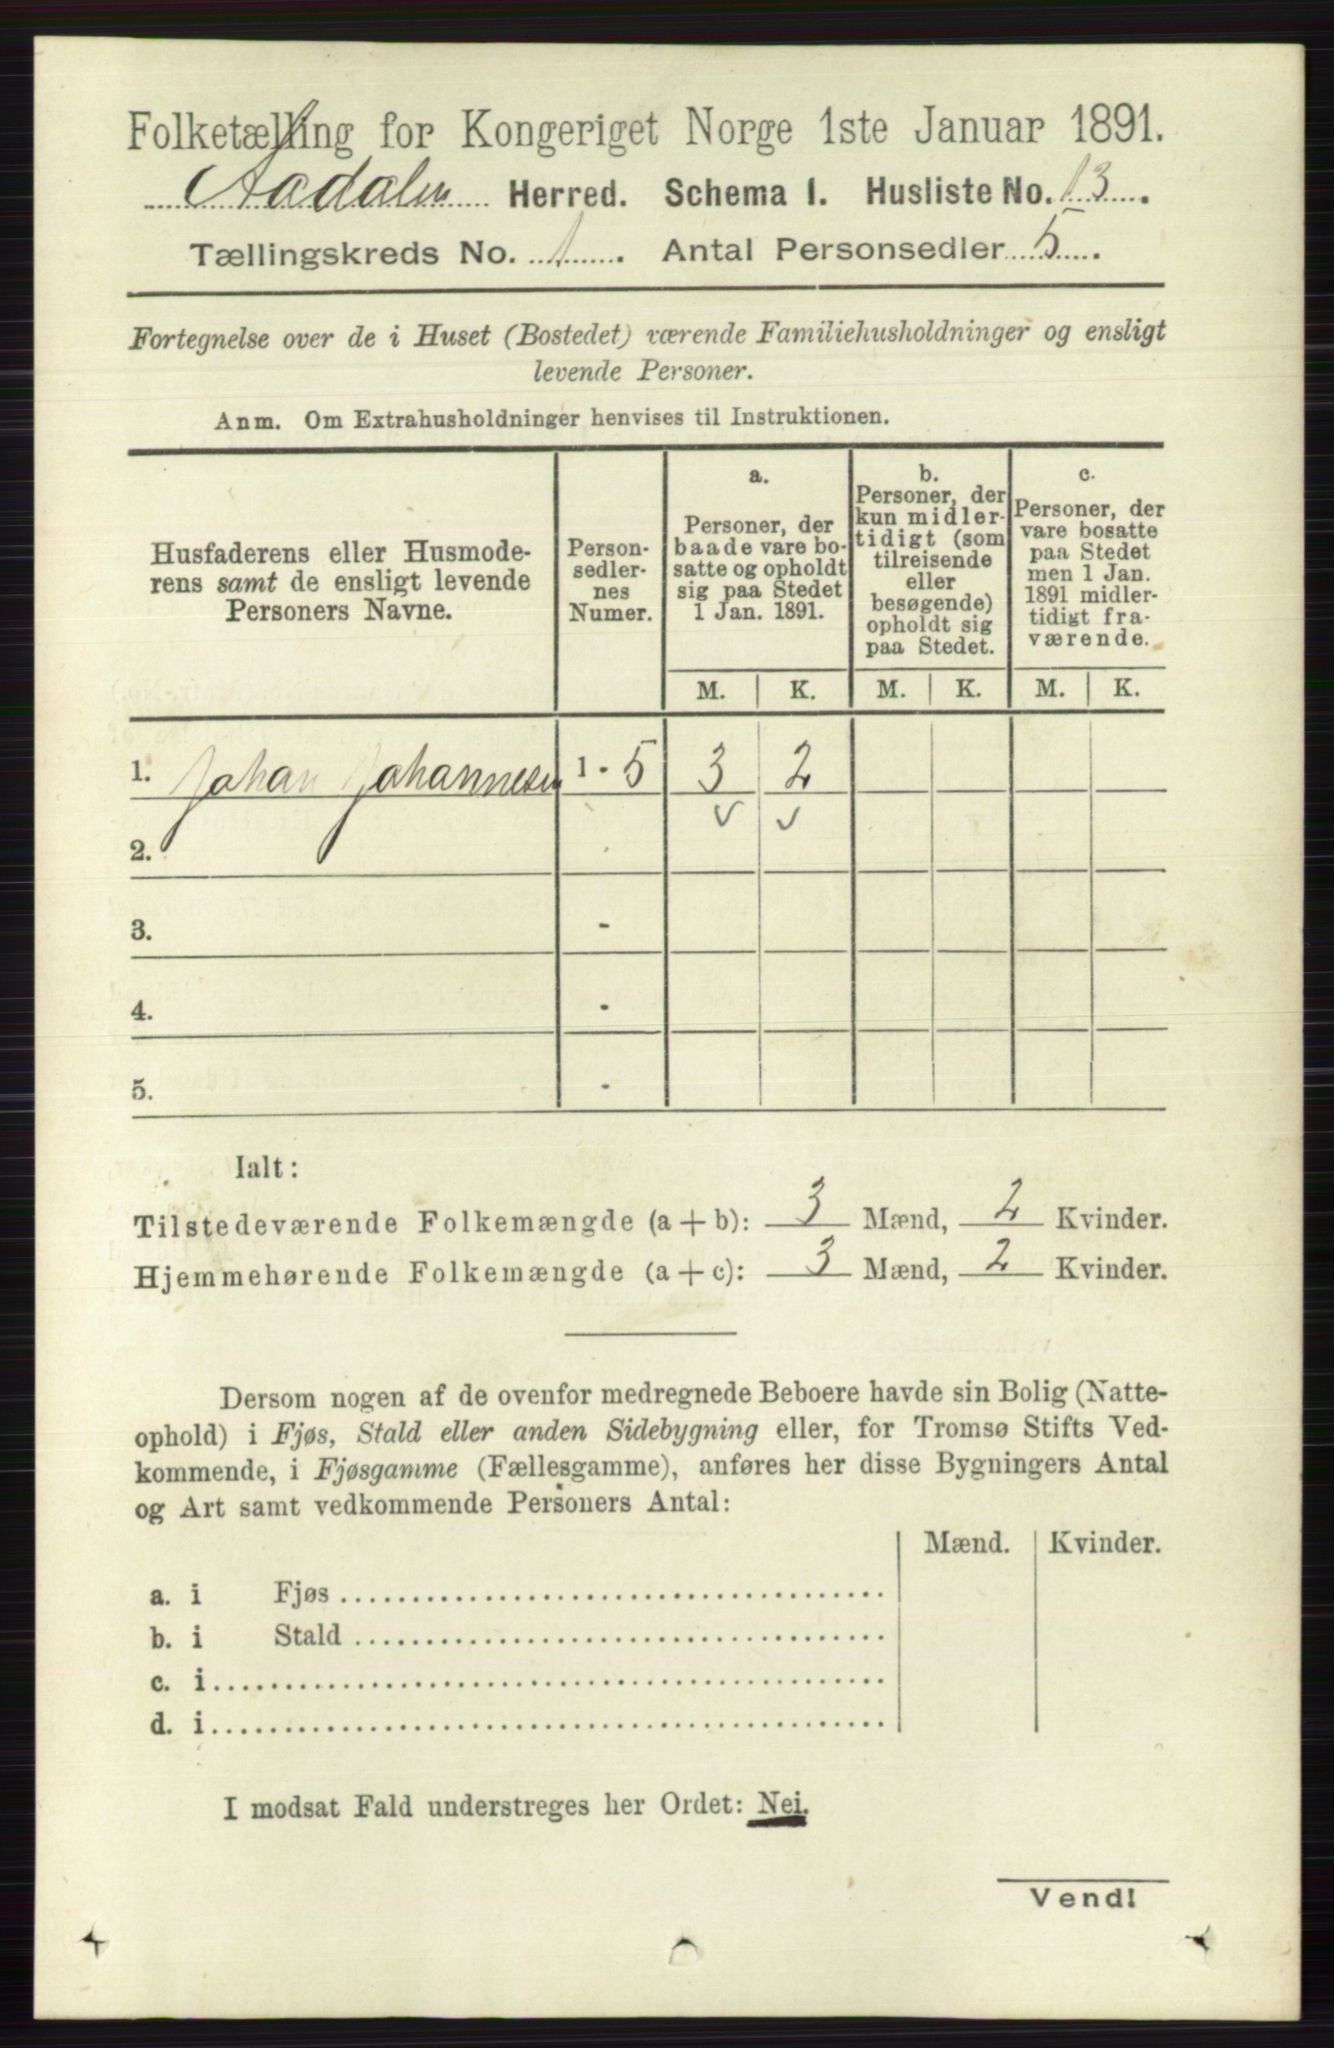 Folketælling for Kongeriget Norge 1ste Januar 1891.
Aadalen Herred. Schema I. Husliste No. 13.
Tællingskreds No. 1. Antal Personsedler 5.
Fortegnelse over de i Huset (Bostedet) værende Familiehusholdninger og ensligt
levende Personer.
Anm. Om Extrahusholdninger henvises til Instruktionen.
Husfaderens eller Husmode-
rens samt de ensligt levende
Personers Navne.
Person-
sedler-
nes
Numer.
a.
Personer, der
baade vare bo-
satte og opholdt
sig paa Stedet
1 Jan. 1891.
b.
Personer, der
kun midler-
tidigt (som
tilreisende
eller
besøgende)
opholdt sig
paa Stedet.
c.
Personer, der
vare bosatte
paa Stedet
men 1 Jan.
1891 midler-
tidigt fra-
værende.
M. K. M. K. M. K.
1. Johan Johannesen 1 - 5 3 2
2.
3. -
4. -
5. -
Ialt:
Tilstedeværende Folkemængde (a + b): 3 Mænd, 2 Kvinder.
Hjemmehørende Folkemængde (a + c): 3 Mænd, 2 Kvinder.
Dersom nogen af de ovenfor medregnede Beboere havde sin Bolig (Natte-
ophold) i Fjøs, Stald eller anden Sidebygning eller, for Tromsø Stifts Ved-
kommende, i Fjøsgamme (Fællesgamme), anføres her disse Bygningers Antal
og Art samt vedkommende Personers Antal:
Mænd. Kvinder.
a. i Fjøs
b. i Stald
c. i
d. i
I modsat Fald understreges her Ordet: Nei.
Vend!